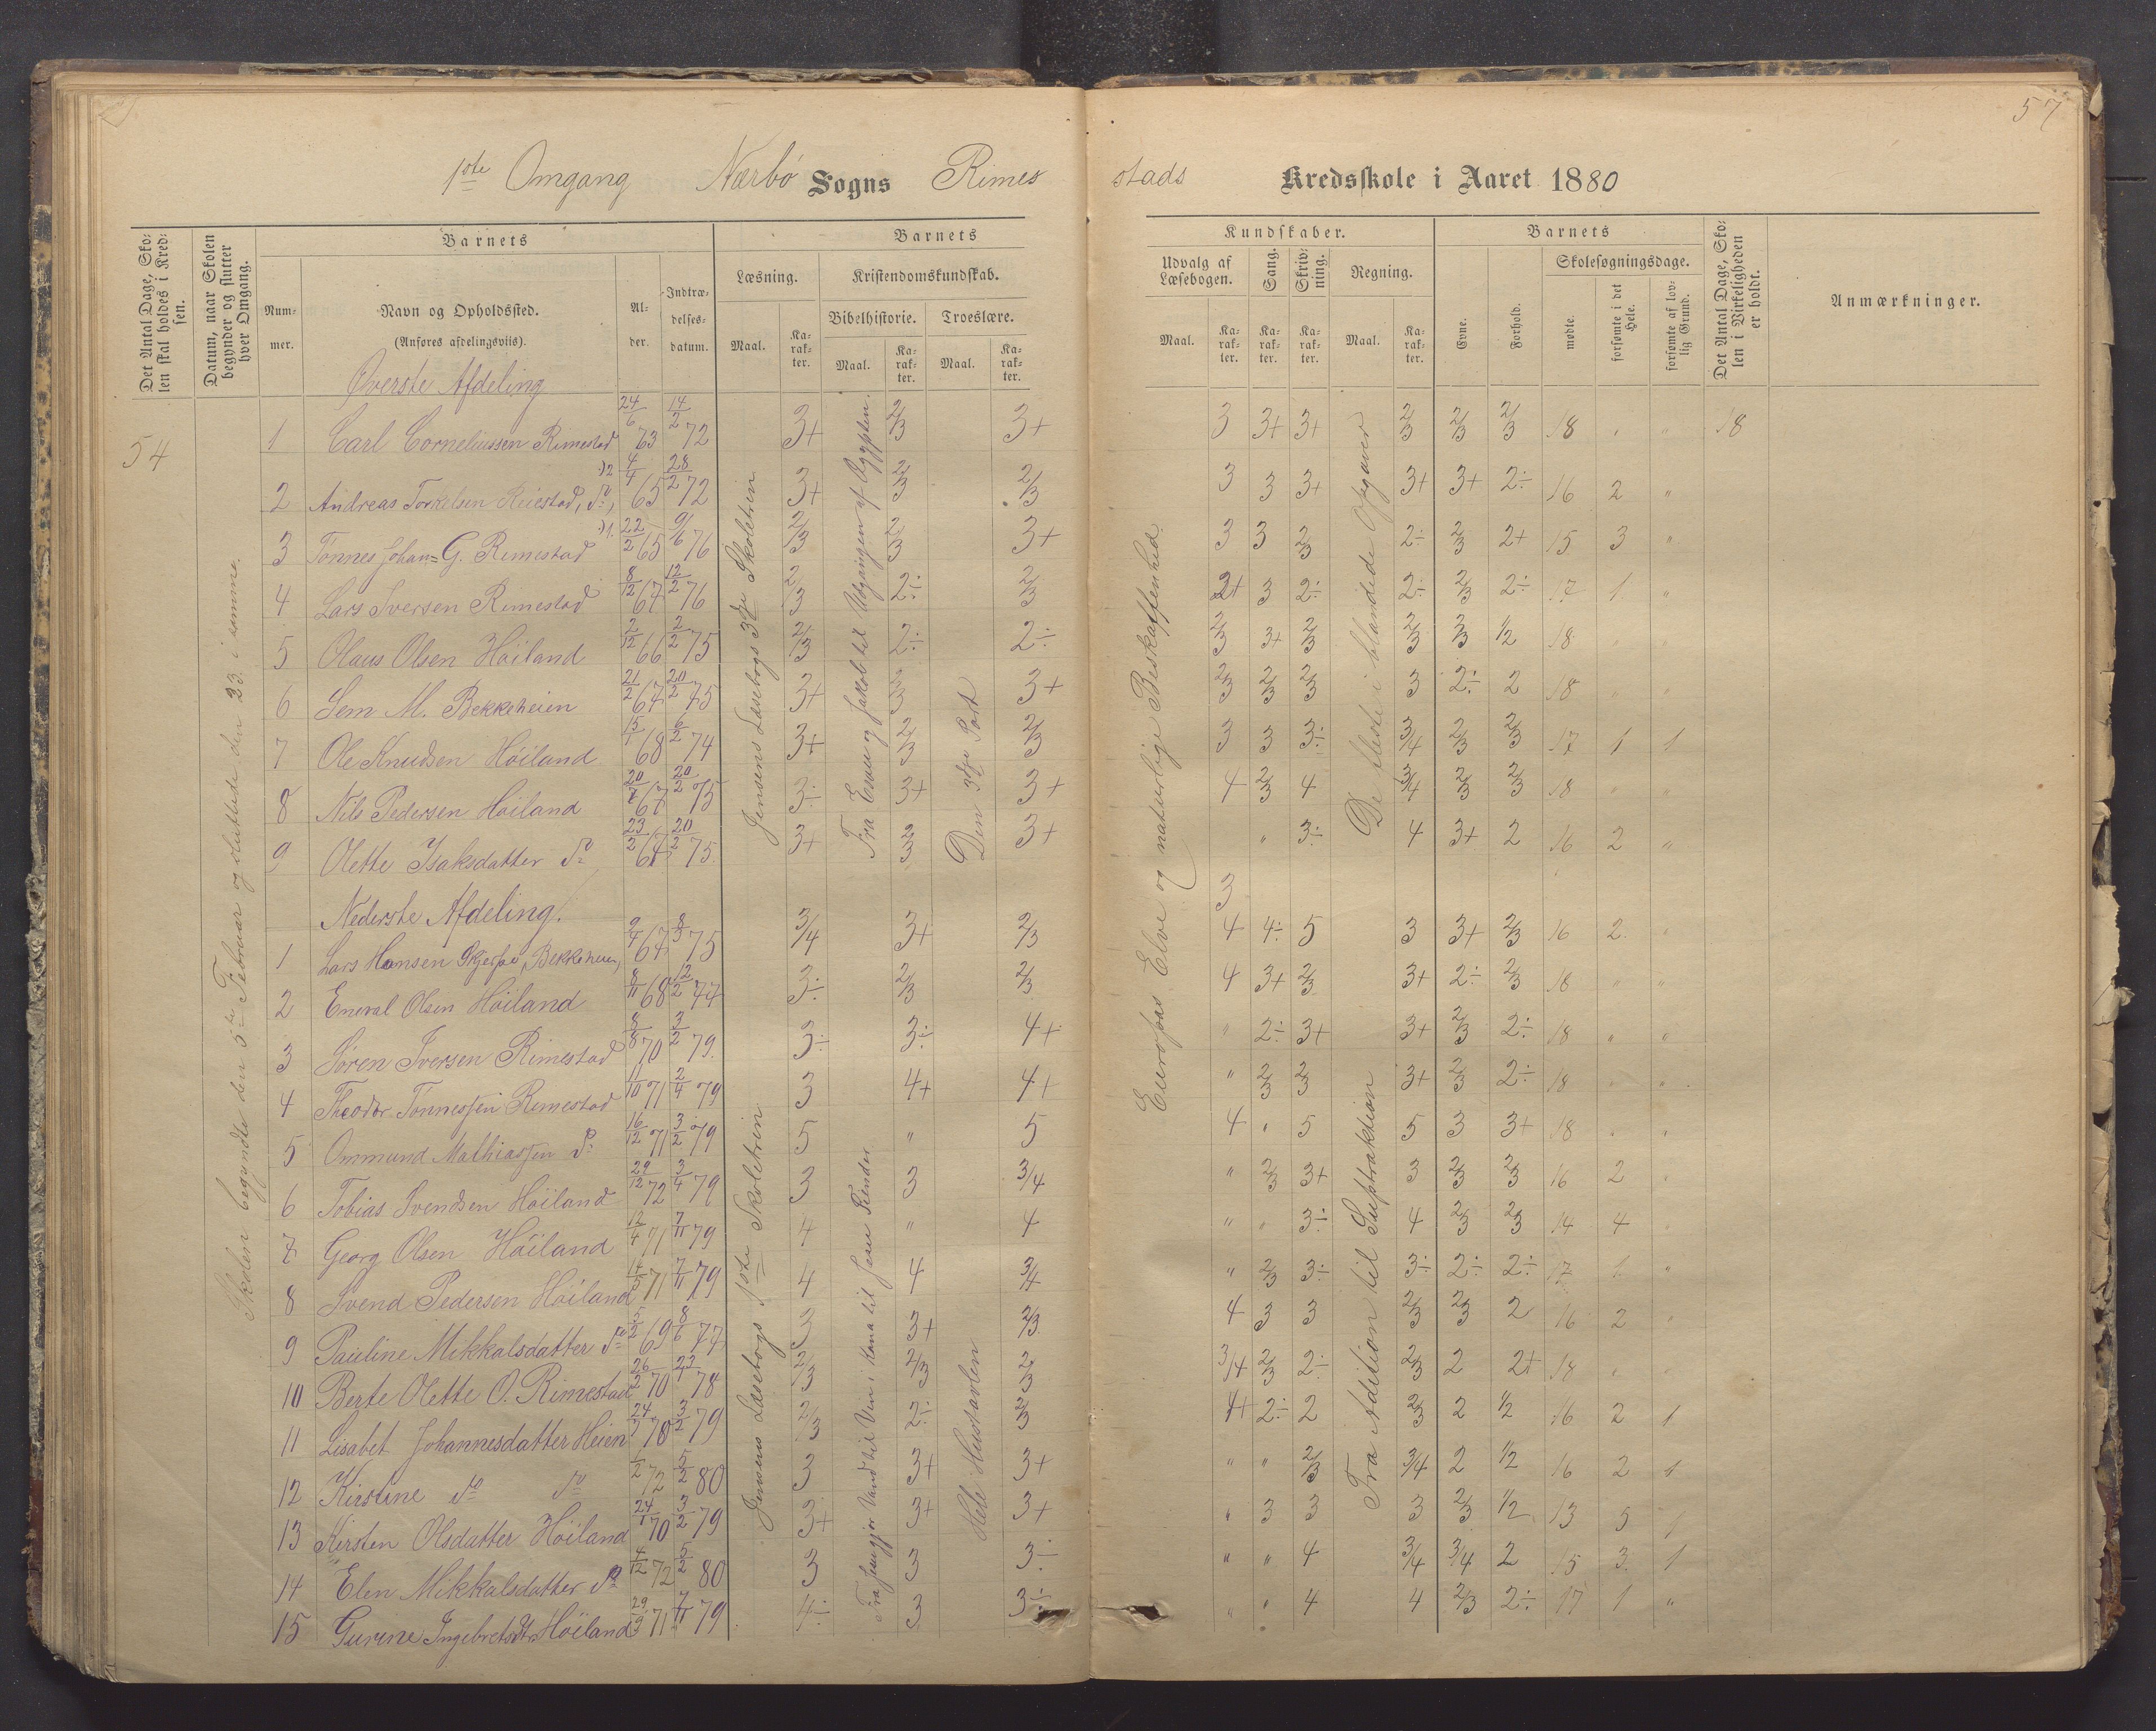 57
1ste Omgang Nærbö Sogns Rimes stads Kredsskole i Aaret 1880
Det Antal Dage, Skolen skal holdes i Kredsen.
Datum, naar Skolen begynder og slutter hver Omgang.
Barnets
Nummer.
Navn og Opholdssted.
(Anføres afdelingsviis).
Alder.
Indtrædelsesdatum.
Barnets
Læsning.
Maal.
Karakter.
Kristendomskundskab.
Bibelhistorie.
Maal.
Karakter.
Troeslære.
Maal.
Karakter.
Kundskaber.
Udvalg af Læsebogen.
Maal.
Karakter.
Sang.
Karakter.
Skrivning.
Karakter.
Regning.
Maal.
Karakter.
Barnets
Evne.
Forhold.
Skolesøgningsdage.
mødte.
forsømte i det Hele.
forsømte af lovlig Grund.
Det Antal Dage, Skolen i Virkeligheden er holdt.
Anmærkninger.
54
Skolen begyndte den 5te Februar og sluttede den 23. i samme.
Jensens Læsebogs 3die Skoletrin
Fra Esau og Jakob til Udgangen af Ægypten.
Den 3die Part
Europas Elve og naturlige Beskaffenhed.
De fleste i blandede Opgaver
Øverste Afdeling
1 Carl Corneliussen Rimestad 24/6 63 14/2 72 3+ 2/3 3+ 3 3+ 3+ 2/3 2/3 2/3 18 " " 18
2 Andreas Torkelsen Reiestad, do, 4/4 65 28/2 72 3+ 2/3 2/3 3 3 3+ 3+ 3+ 2÷ 16 2 "
3 Tonnes Johan G. Rimestad 22/2 65 9/6 76 2/3 2/3 3+ 3 3 2/3 2÷ 2/3 2+ 15 3 "
4 Lars Iversen Rimestad 8/12 67 12/2 76 2/3 2÷ 2/3 2+ 3 2÷ 2÷ 2/3 2÷ 17 1 "
5 Olaus Olsen Höiland 2/12 66 2/2 75 2/3 2÷ 2÷ 2/3 3+ 2/3 2/3 2/3 1/2 18
6 Sem M. Bekkeheien 21/2 67 20/2 75 3+ 2/3 3+ 2/3 2/3 2/3 3 2÷ 2 18 " "
7 Ole Knudsen Höiland 15/1 68 6/2 74 3+ 2/3 2/3 3 3 3÷ 3/4 2/3 2/3 17 1 1
8 Nils Pedersen Höiland 67 20/2 75 3÷ 3+ 3+ 4 2/3 4 3/4 2/3 2/3 18 " "
9 Olette Isaksdatter do 23/2 67 20/2 75 3+ 2/3 3+ 3 " 3÷ 4 3+ 2 16 2 "
Nederste Afdeling.
Jensens Læsebogs 1ste Skoletrin
Fra Jesus gjør Vand til Vin i Kana til Jesu Fiender
Hele Hustavlen
Fra Adition til Suptraktion
1 Lars Hansen Skjerpe, Bekkeheien, 9/4 67 8/3 75 3/4 3+ 2/3 4 4÷ 5 3 3+ 2/3 16 2 "
2 Eneval Olsen Höiland 8/11 68 12/2 77 3÷ 2/3 2/3 4 3+ 2/3 3+ 2÷ 2/3 18 " "
3 Sören Iversen Rimestad 8/8 70 3/2 79 3÷ 3÷ 4+ " 2÷ 3+ 3+ 2/3 2÷ 18 " "
4 Theodor Tonnessen Rimestad 11/10 71 2/4 79 3 4+ 4+ " 2/3 2/3 3+ 2/3 2÷ 18 " "
5 Ommund Mathiassen do 16/12 71 3/2 79 5 " 5 4 " 5 5 3 3+ 18 " "
6 Tobias Svendsen Höiland 29/12 72 3/4 79 3 3 3/4 " 2/3 3+ 3 2/3 2/3 16 2 "
7 Georg Olsen Höiland 12/4 71 7/11 79 4 " 4 " " 3÷ 4 2/3 2/3 14 4 "
8 Svend Pedersen Höiland 14/5 71 7/11 79 4 4 3/4 " 2/3 3÷ 3÷ 2÷ 2÷ 17 1 "
9 Pauline Mikkalsdatter do 5/2 69 8/6 77 3 3+ 2/3 4 3 3 2/3 2/3 2 16 2 "
10 Berte Olette O. Rimestad 26/2 70 78 2/3 2/3 2/3 3/4 2/3 2÷ 2/3 2 2+ 18 " "
11 Lisabet Johannesdatter Heien 70 3/2 79 2/3 2÷ 2/3 4+ 2÷ 2 2/3 2 1/2 16 2 1
12 Kirstine do do 1/2 72 5/2 80 3 3+ 3+ " " 2/3 3/4 2 1/2 16 2 1
13 Kirsten Olsdatter Höiland 24/1 70 3/2 79 3+ 3+ 3+ " 3 3 3 2/3 1/2 13 5 1
14 Elen Mikkalsdatter do 4/12 72 5/2 80 3 3 3÷ " " 4 3/4 3/4 2 15 3 1
15 Gurine Ingebretsdtr Höiland 29/9 71 7/11 79 4÷ 3 3÷ " " 4 4 2/3 2÷ 17 1 "